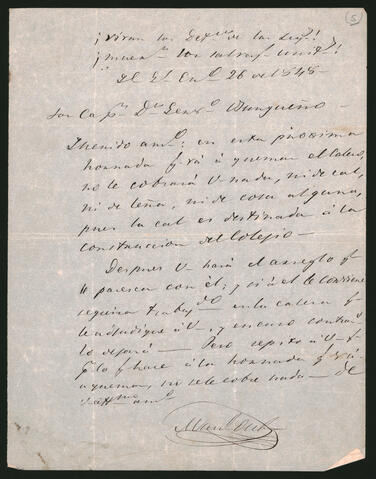 5
¡Vivan los Def.res de las Ley.s!
¡muer.n los salvag.s unit.s!
En.o 26 de 1845
Sor Cap.n Dn
Querido am.o: en esta próssima
hornada q.e vá á quemar el calero,
no le cobrará V. nada, ni de cal,
ni de leña, ni de cosa alguna,
pues la cal es destinada á la
construccion del Colegio—
Despues V. hará el arreglo q.e
le paresca con él; y si á él le conviene
seguirá trabaj.do en la calera q.e
le adjudique á V., y en caso contra.o
lo dejará— Pero repito á V. q.e
p.r lo q.e hace á la hornada q.e vá
a quemar, no se le cobre nada— De
V. aff.mo am.o
Man.l